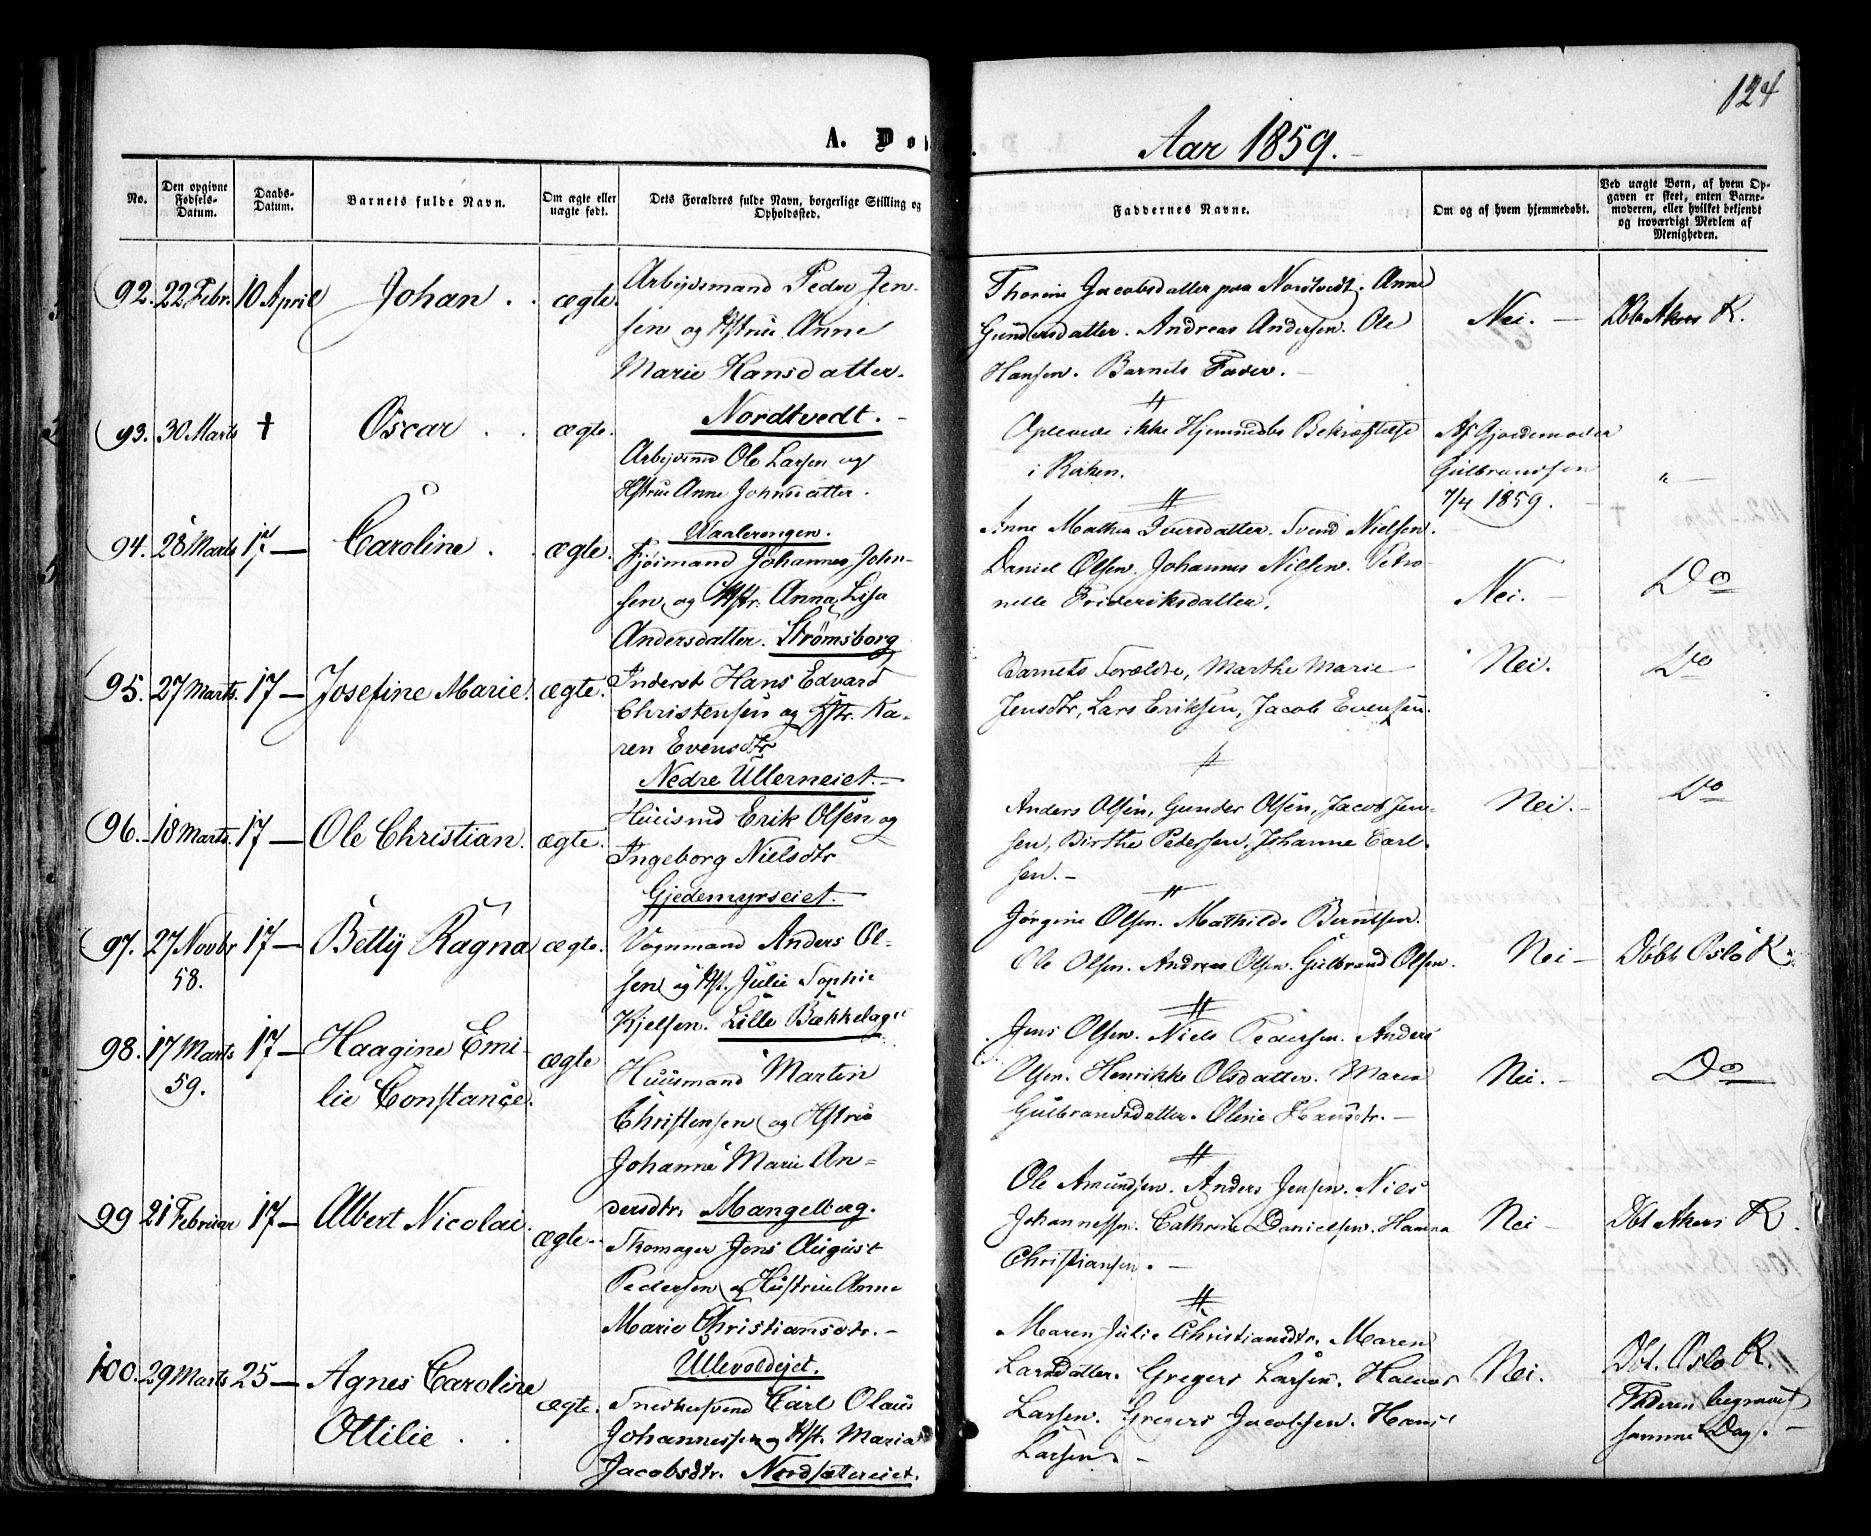 124
A. Dø
Aar 1859.
No.
Den opgivne Fødsels-Datum.
Daabs-Datum.
Barnets fulde Navn.
Om ægte eller uægte født.
Dets Forældres fulde Navn, borgerlige Stilling og Opholdssted.
Faddernes Navne.
Om og af hvem hjemmedøbt.
Ved uægte Børn, af hvem Opgaven er skeet, enten Barnemoderen, eller hvilket bekjendt og troværdigt Medlem af Menigheden.
92. 22 Febr. 10 April Johan. ægte.
Arbejdsmand Peder Jen-
sen og Hstrue Anne
Marie Hansdatter.
Nordtvedt.
Thorine Jacobsdatter paa Nordtvedt. Anne
Gundersdatter. Andreas Andersen. Ole
Hansen. Barnets Fader.
Nei.
Dbt Akers K.
93. 30 Marts † Oscar. ægte.
Arbejdsmd Ole Larsen og
Hstrue Anne Johnsdatter.
Waalerengen.
Oplevede ikke Hjemmedbs Bekræftelse
i Kirken.
Af Gjordemoder
Gulbrandsen
7/4 1859.
"
94. 28 Marts 17 — Caroline. ægte.
Tjømand Johannes John-
sen og Hstr. Anna Lisa
Andersdatter. Strømsborg
Anne Mathea Iversdatter. Svend Nielsen.
Daniel Olsen. Johannes Nilsen. Petro-
nelle Frideriksdatter.
Nei.
Do
95. 27 Marts. 17 — Josefine Marie. ægte.
Inderst Hans Edvard
Christensen og Hstr. Ka-
ren Evensdtr
Nedre Ullerneiet.
Barnets Forældre, Marthe Marie
Jensdtr, Lars Eriksen, Jacob Evensen.
Nei.
Do
96. 18 Marts. 17 — Ole Christian. ægte.
Huusmd Erik Olsen og
Ingeborg Nielsdtr
Gjedemyrseiet.
Anders Olsen, Gunder Olsen, Jacob Jen-
sen, Birthe Pedersen, Johanne Carl-
sen.
Nei.
Do
97. 27 Novbr 58. 17 — Betty Ragna ægte.
Vognmand Anders Ol-
sen og Hst. Julie Sophie
Kjelsen. Lille Bækkelaget
Jørgine Olsen. Mathilde Berntsen.
Ole Olsen. Andreas Olsen. Gulbrand Olsen.
Nei
Døbt Oslo K.
98. 17 Marts 59. 17 — Haagine Emi-
lie Constance. ægte
Huusmand Martin
Christensen og Hstrue
Johanne Marie An-
dersdtr. Mangelberg.
Jens Olsen. Niels Pedersen. Anders
Olsen. Henrikke Olsdatter. Maren
Gulbrandsdatter. Oline Hansdtr.
Nei.
Do
99 21 Februar 17 — Albert Nicolai. ægte.
Skomager Jens August
Pedersen og Hustrue Anne
Marie Christiansdtr.
Ullevoldejet.
Ole Amundsen. Anders Jensen. Niels
Johannessn. Cathrine Danielsen. Hanna
Christiansen.
Nei
Dbt Akers K.
100. 29 Marts 25 — Agnes Caroline
Ottilie. ægte.
Snedkersvend Carl Olaus
Johannessen og Hst. Maria
Jacobsdtr. Nordsætereiet.
Maren Julie Christiansdtr. Maren
Larsdatter. Gregers Larsen. Halvor
Larsen. Gregers Jacobsen. Hans
Larsen.
Nei.
Dbt. Oslo K.
Faderen begravet
samme Dag.